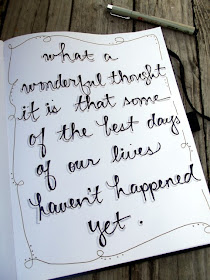 what a
wonderful thought
it is that some
of the best days
of our lives
haven't happened
yet.